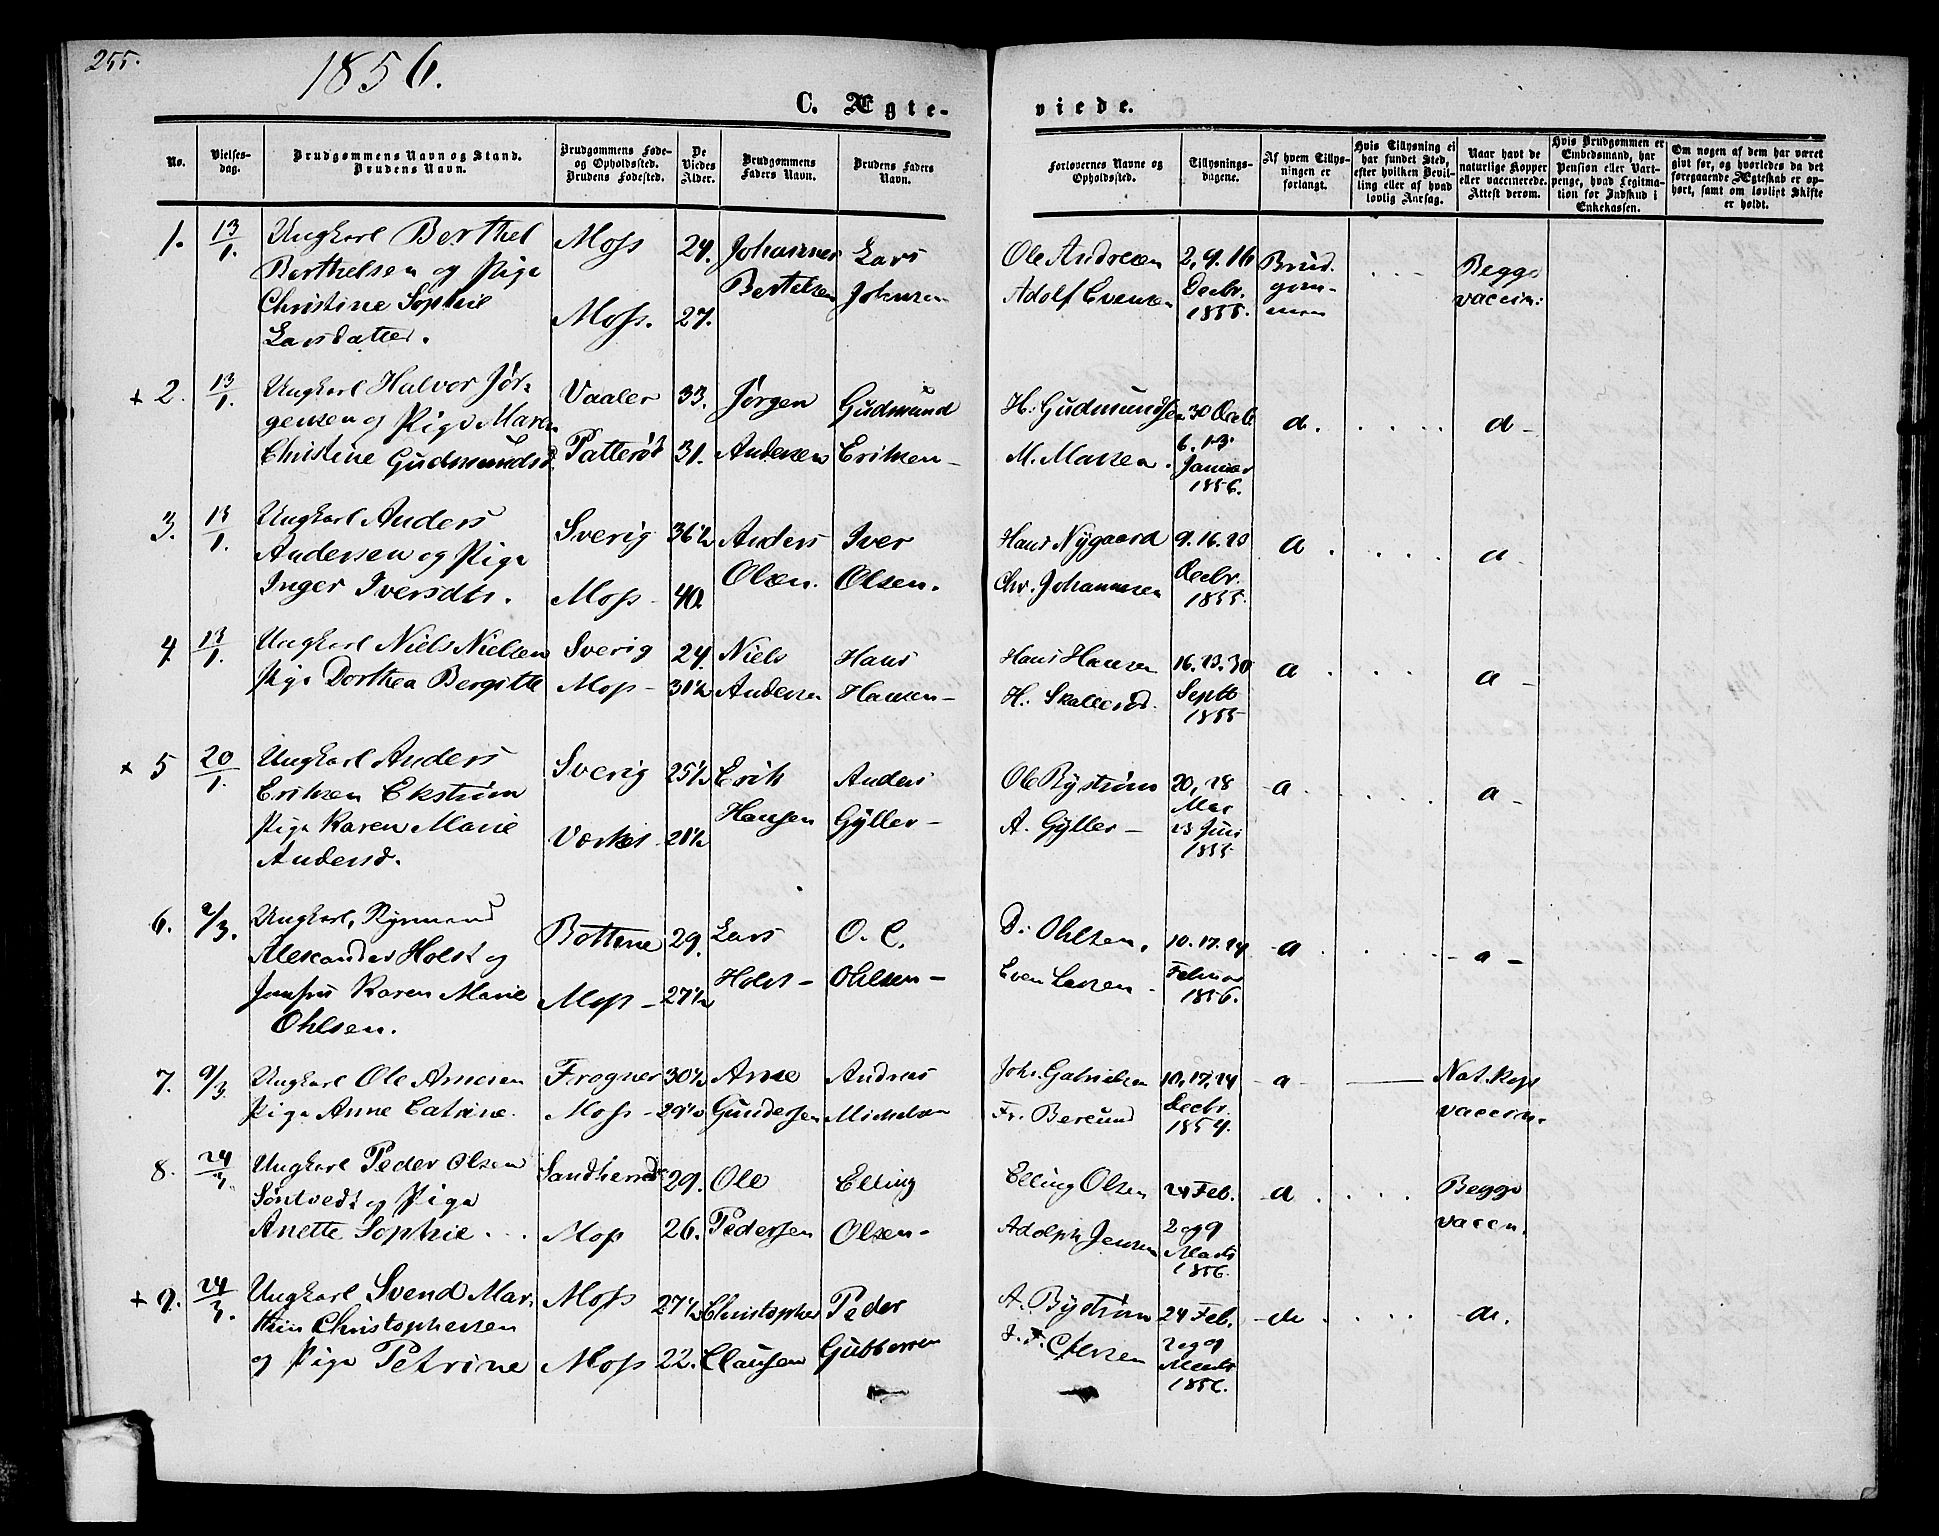 255.
1856.
C. Ægte-
viede.
No.
Vielses-
dag.
Brudgommens Navn og Stand.
Brudens Navn.
Brudgommens Føde-
og Opholdssted.
Brudens Fødested.
De
Viedes
Alder.
Brudgommens
Faders Navn.
Brudens Faders
Navn.
Forlovernes Navne og
Opholdssted.
Tillysnings-
dagene.
Af hvem Tillys-
ningen er
forlangt.
Hvis Tillysning ei
har fundet Sted,
efter hvilken Bevil-
ling eller af hvad
lovlig Aarsag.
Naar havt de
naturlige Kopper
eller vaccinerede.
Attest derom.
Hvis Brudgommen er
Embedsmand, har
Pension eller Vart-
penge, hvad Legitima-
tion for Indskud i
Enkekassen.
Om nogen af dem har været
gift før, og hvorledes da det
foregaaende Ægteskab er op-
hørt, samt om lovligt Skifte
er holdt.
1. 13/1. Ungkarl Berthel Moss 24. Johannes Lars Ole Andresen 2, 9. 16 Brud- Begge
Berthelsen og Pige Bertelsen Johnsen Adolf Evensen Decbr. gom- vaccin:
Christine Sophie Moss. 27. 1855. men
Larsdatter.
+ 2. 13/1. Ungkarl Halvor Jør- Vaaler 33. Jørgen Gudmund H: Gudmundsen 30 Decb d. d -
gensen og Pige Maren 6. 13
Christine Gudmundsd. Patterød 31. Andersen Eriksen - M. Massen. Januar
1856.
3. 13/1. Ungkarl Anders Sverig 36½ Anders Iver Hans Nygaard 9. 16. 23 d d
Andersen og Pige Olsen. Olsen. Chr. Johannesen Decbr.
Inger Iversdtr. Moss - 40. 1855.
4 13/1. Ungkarl Niels Nielsen Sverig 24. Niels Hans Hans Hansen 16. 23. 30 d d -
Pige Dorthea Bergitte Moss - 31½ Andersen Hansen - H: Skallerød. Septb
1855
x 5 20/1. Ungkarl Anders Sverig 25½ Erik Anders Ole Bystrøm 20, 28 d d -
Eriksen Ekstrøm Hansen Gyller - Mai
Pige Karen Marie Værket 21½ A. Gyller - 23 Juni
Andersd. 1855
6. 2/3. Ungkarl, Styrmand Bottene 29. Lars O. C. D. Ohlsen, 10. 17. 24 d - d -
Alexander Holst og Holst - Ohlsen - Even Larsen - Februar
Jomfru Karen Marie Moss - 27½ 1856.
Ohlsen.
7. 9/3 Ungkarl Ole Arnesen Frogner 30½ Arne Andreas Joh. Gabrielsen 10, 17, 24 d - Nat. Kop
Pige Anne Catrine. Moss - 29½ Gundersen Michelsen Fr. Berlund Decbr. vaccin.
1854.
8. 24/3. Ungkarl Peder Olsen Sandherred 29. Ole Elling Elling Olsen 24 Feb. d Begge
Søntvedt og Pige 2 og 9 vaccin.
Anette Sophie. Moss 26. Pedersen Olsen - Adolph Jensen Marts
1856.
+ 9. 24/3. Ungkarl Svend Mar- Moss 27½ Christopher Peder A. Bystrøm 24 Feb. do do.
thin Christophersen 2 og 9
og Pige Petrine Moss 22. Clausen Gubbersen Marts
1856.